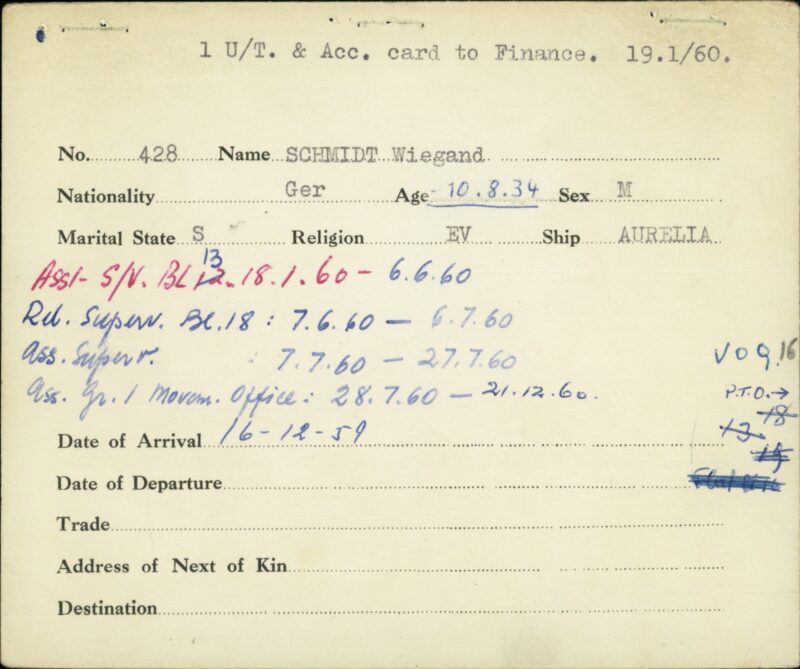 1 U/T. & Acc. card to Finance. 19.1/60.
No. 428 Name SCHMIDT Wiegand
Nationality Ger Age 10.8.34 Sex M
Marital State S Religion EV Ship AURELIA
13
Asst- S/V. BL 12. 18.1.60 - 6.6.60
Rel. Superv. Bl. 18 : 7.6.60 — 6.7.60
Ass. Superv. : 7.7.60 — 27.7.60
VOQ. 16
Ass. Gr. 1 Movem. Office : 28.7.60 — 21.12.60.
P.T.O. →
18
Date of Arrival 16-12-59
13
15
Date of Departure
Trade
Address of Next of Kin
Destination